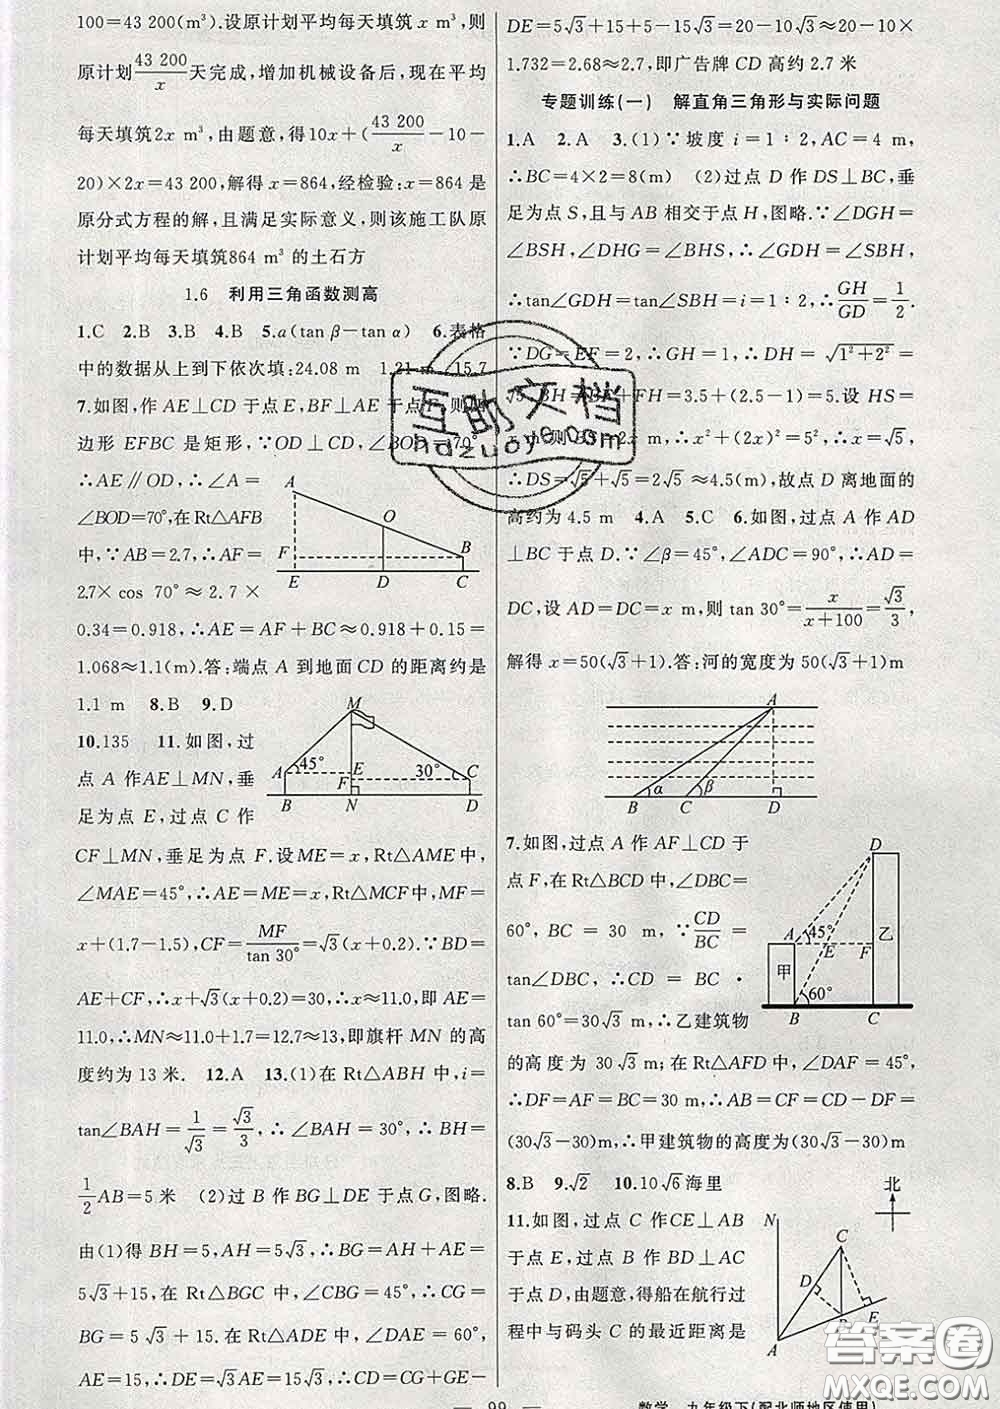 100=43 200(m³).设原计划平均每天填筑 x m³,则
原计划43 200/x天完成,增加机械设备后,现在平均
每天填筑2x m³,由题意,得10x+(43 200/x-10-
20)×2x=43 200,解得 x=864,经检验:x=864 是
原分式方程的解,且满足实际意义,则该施工队原
计划平均每天填筑864 m³的土石方
1.6 利用三角函数测高
1.C 2.B 3.B 4.B 5.a(tan β-tan α) 6.表格
中的数据从上到下依次填:24.08 m 1.21 m 15.7
7.如图,作 AE⊥CD 于点 E,BF⊥AE 于点F,则四
边形 EFBC 是矩形,∵OD⊥CD,∠BOD=70°
∴AE∥OD,∴∠A=
∠BOD=70°,在Rt△AFB
中,∵AB=2.7,∴AF=
2.7×cos 70°≈2.7×
0.34=0.918,∴AE=AF+BC≈0.918+0.15=
1.068≈1.1(m).答:端点 A 到地面 CD 的距离约是
1.1 m 8.B 9.D
A
O
F
B
E
D
C
10.135 11.如图,过
点 A 作AE⊥MN,垂
足为点 E,过点 C 作
M
A
45°
E
F
30°
C
B
N
D
CF⊥MN,垂足为点 F.设ME=x,Rt△AME 中,
∠MAE=45°,∴AE=ME=x,Rt△MCF中,MF=
x+(1.7-1.5),CF=MF/tan 30°=√3(x+0.2).∵BD=
AE+CF,∴x+√3(x+0.2)=30,∴x≈11.0,即 AE=
11.0,∴MN≈11.0+1.7=12.7≈13,即旗杆 MN 的高
度约为 13 米. 12.A 13.(1)在Rt△ABH 中,i=
tan∠BAH=1/√3=√3/3,∴∠BAH=30°,∴BH=
1/2AB=5 米 (2)过 B 作 BG⊥DE 于点G,图略.
由(1)得 BH=5,AH=5√3,∴BG=AH+AE=
5√3+15,在 Rt△BGC 中,∠CBG=45°,∴CG=
BG=5√3+15.在 Rt△ADE 中,∠DAE=60°,
AE=15,∴DE=√3AE=15√3,∴CD=CG+GE-
DE=5√3+15+5-15√3=20-10√3≈20-10×
1.732=2.68≈2.7,即广告牌 CD 高约 2.7 米
专题训练(一) 解直角三角形与实际问题
1.A 2.A 3.(1)∵坡度 i=1∶2,AC=4 m,
∴BC=4×2=8(m) (2)过点 D 作 DS⊥BC,垂
足为点 S,且与 AB 相交于点 H,图略.∵∠DGH=
∠BSH,∠DHG=∠BHS,∴∠GDH=∠SBH,
∴tan∠GDH=tan∠SBH=1∶2,∴GH/GD=1/2.
∵DG=EF=2,∴GH=1,∴DH=√1²+2²=
√5,BH=BF+FH=3.5+(2.5-1)=5.设 HS=
x m,则BS=2x m,∴x²+(2x)²=5²,∴x=√5,
∴DS=√5+√5=2√5≈4.5(m),故点 D 离地面的
高约为 4.5 m 4.A 5.C 6.如图,过点 A 作 AD
⊥BC 于点 D.∵∠β=45°,∠ADC=90°,∴AD=
DC,设 AD=DC=x m,则 tan 30°=x/x+100=√3/3,
解得 x=50(√3+1).答:河的宽度为 50(√3+1)m
A
B
α
C
β
D
7.如图,过点 A 作 AF⊥CD 于
点 F,在 Rt△BCD 中,∠DBC=
60°,BC=30 m,∵CD/BC=
tan∠DBC,∴CD=BC·
tan 60°=30√3 m,∴乙建筑物
D
A
45°
E
F
甲
乙
60°
B
C
的高度为 30√3 m;在 Rt△AFD 中,∠DAF=45°,
∴DF=AF=BC=30 m,∴AB=CF=CD-DF=
(30√3-30)m,∴甲建筑物的高度为(30√3-30)m
8.B 9.√2 10.10√6海里
11.如图,过点 C 作CE⊥AB
于点 E,过点 B 作 BD⊥AC
于点 D,由题意,得船在航行过
程中与码头 C 的最近距离是
北
N
C
D
B
E
A
99
数学 九年级下(配北师地区使用)
互助文档
hdzuoye.com
答案圈
MXQE.COM